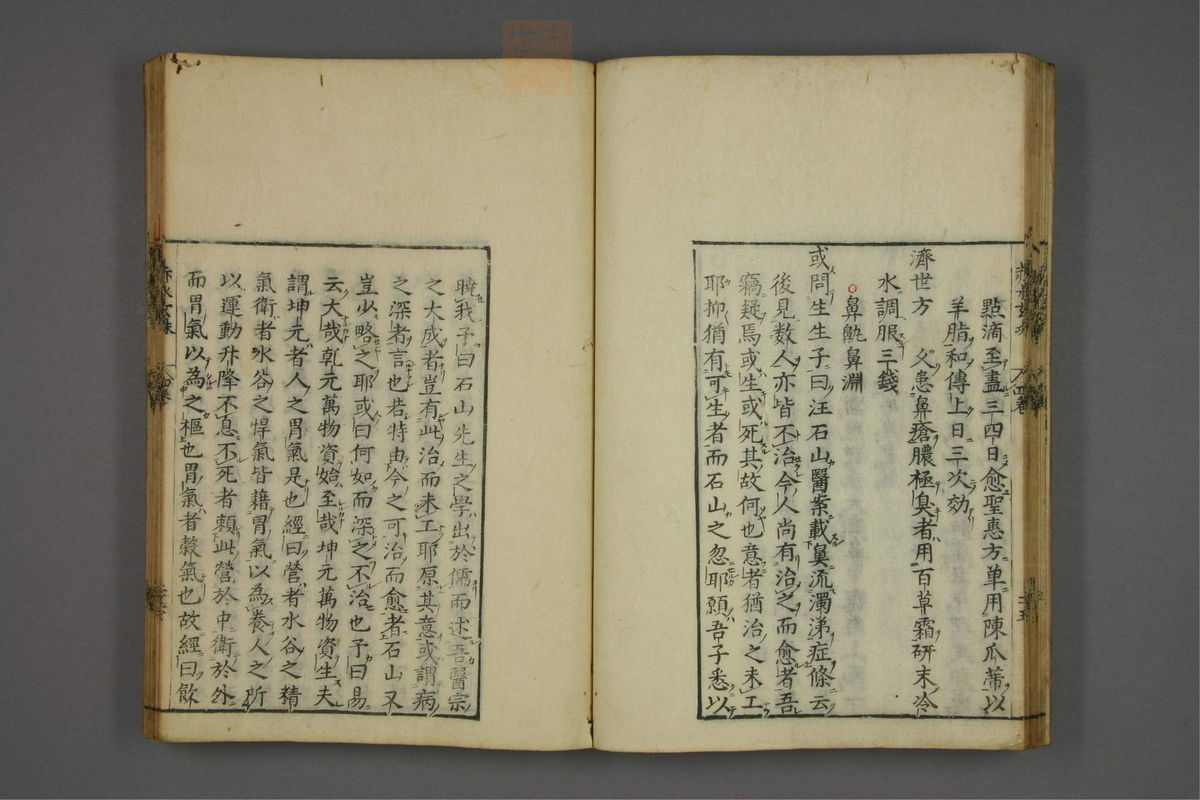 點滴至盡三四日愈聖惠方单用陳瓜蒂以
羊脂和傳上日三次効
濟世方　父患鼻瘡膿極臭者用百草霜研末冷
水調服三錢
鼻鼽鼻淵
或問生生子曰汪石山醫案載鼻流濁涕症條云
後見数人亦皆不治今人尚有治之而愈者吾
竊疑焉或生或死其故何也意者猶治之未工
耶抑猶有可生者而石山之忽耶願吾子悉以
曉我予曰石山先生之學出於儒而述吾醫宗
之大成者豈有此治而未工耶原其意或謂病
之深者言也若特由今之可治而愈者石山又
豈少略之耶或曰何如而深之不治也予曰易
云大哉乾元萬物資始至哉坤元萬物資生夫
謂坤元者人之胃氣是也經曰營者水谷之精
氣衛者水谷之悍氣皆藉胃氣以為養人之所
以運動升降不息不死者頼此營於中衛於外
而胃氣以為之樞也胃氣者穀氣也故經曰飲